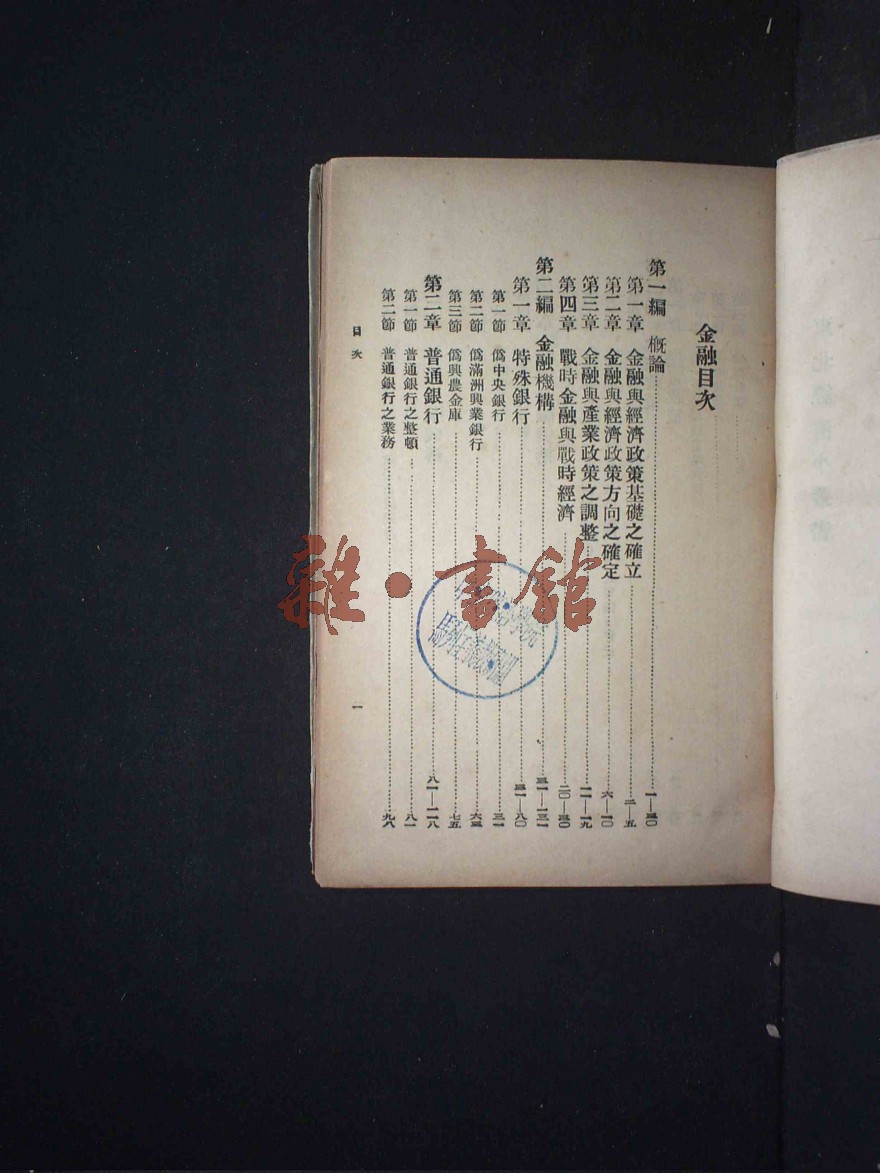 金融目次
第一編 概論……一—三〇
第一章 金融與經濟政策基礎之確立……二—五
第二章 金融與經濟政策方向之確定……六—一〇
第三章 金融與產業政策之調整……一一—一九
第四章 戰時金融與戰時經濟……二〇—三〇
第二編 金融機構……三一—一三一
第一章 特殊銀行……三一—八〇
第一節 僞中央銀行……三一
第二節 僞滿洲興業銀行……六三
第三節 僞興農金庫……七五
第二章 普通銀行……八一—一一八
第一節 普通銀行之整頓……八一
第二節 普通銀行之業務……九八
目次
一
雜·書館